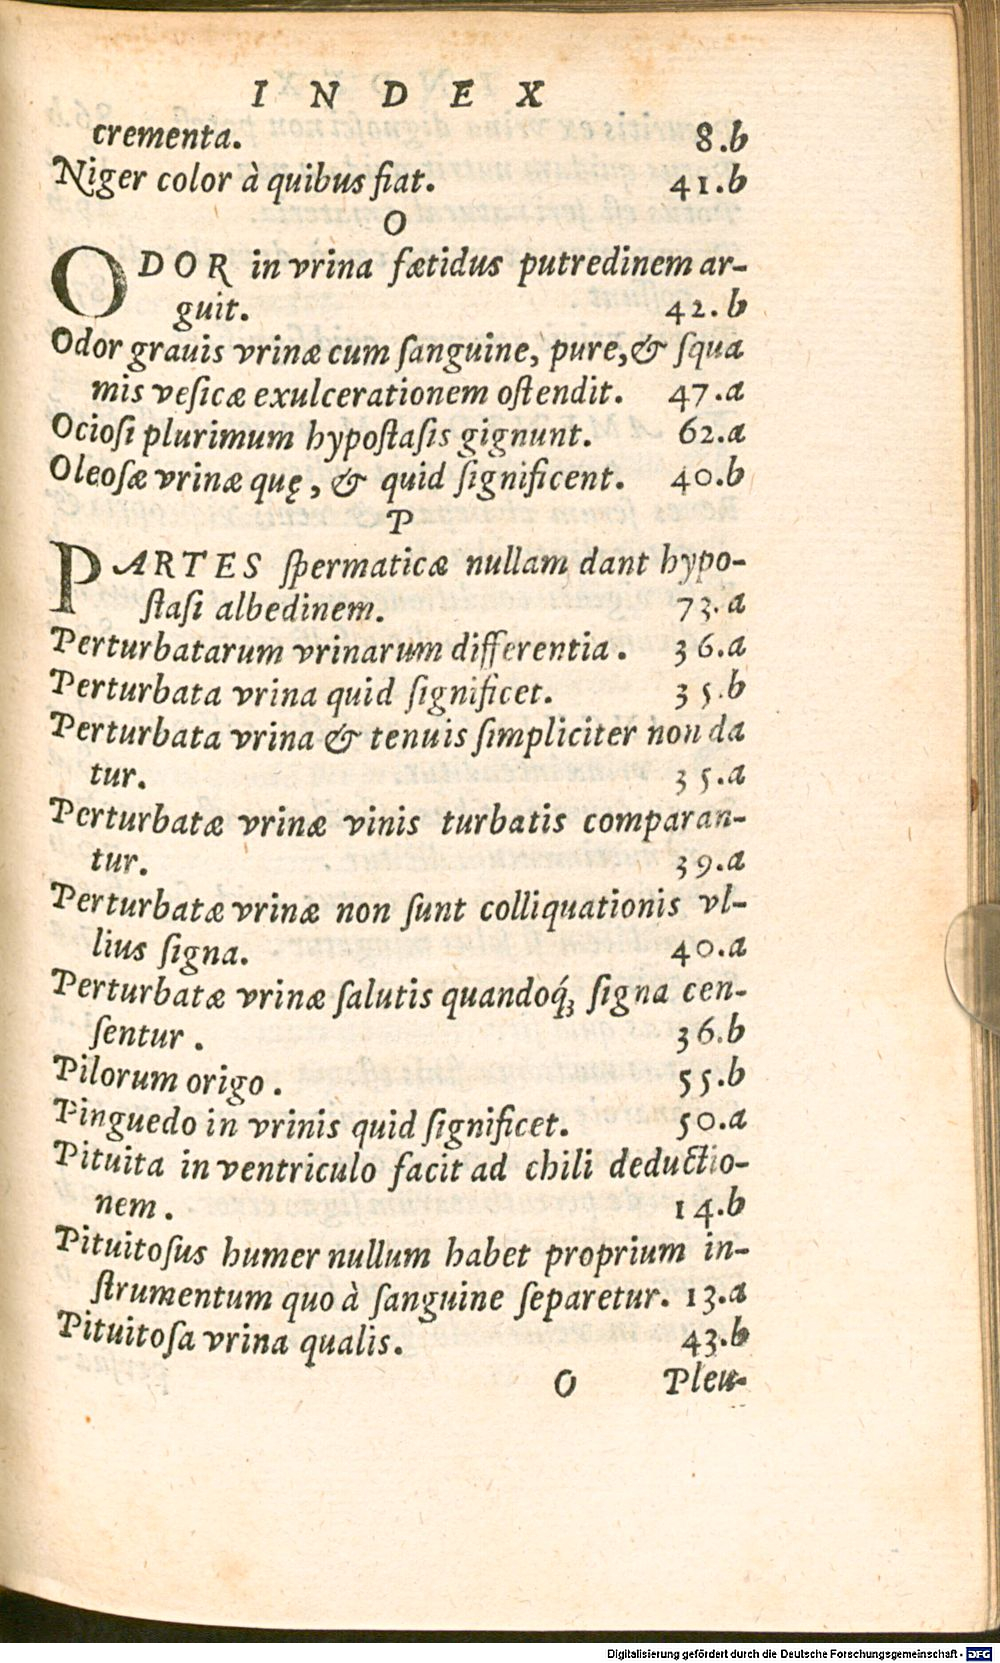 INDEX
crementa. 8.b
Niger color à quibus fiat. 41.b
O
ODOR in vrina fætidus putredinem ar-
guit. 42.b
Odor grauis vrinæ cum ſanguine, pure, & ſqua
mis veſicæ exulcerationem oſtendit. 47.a
Ocioſi plurimum hypoſtaſis gignunt. 62.a
Oleoſæ vrinæ quę, & quid ſignificent. 40.b
P
PARTES ſpermaticæ nullam dant hypo-
ſtaſi albedinem. 73.a
Perturbatarum vrinarum differentia. 36.a
Perturbata vrina quid ſignificet. 35.b
Perturbata vrina & tenuis ſimpliciter non da
tur. 35.a
Perturbatæ vrinæ vinis turbatis comparan-
tur. 39.a
Perturbatæ vrinæ non sunt colliquationis vl-
lius ſigna. 40.a
Perturbatæ vrinæ ſalutis quandoq́; ſigna cen-
ſentur. 36.b
Pilorum origo. 55.b
Pinguedo in vrinis quid ſignificet. 50.a
Pituita in ventriculo facit ad chili deductio-
nem. 14.b
Pituitoſus humer nullum habet proprium in-
ſtrumentum quo à ſanguine ſeparetur. 13.a
Pituitoſa vrina qualis. 43.b
O Pleu-
Digitalisierung gefördert durch die Deutsche Forschungsgemeinschaft - DFG